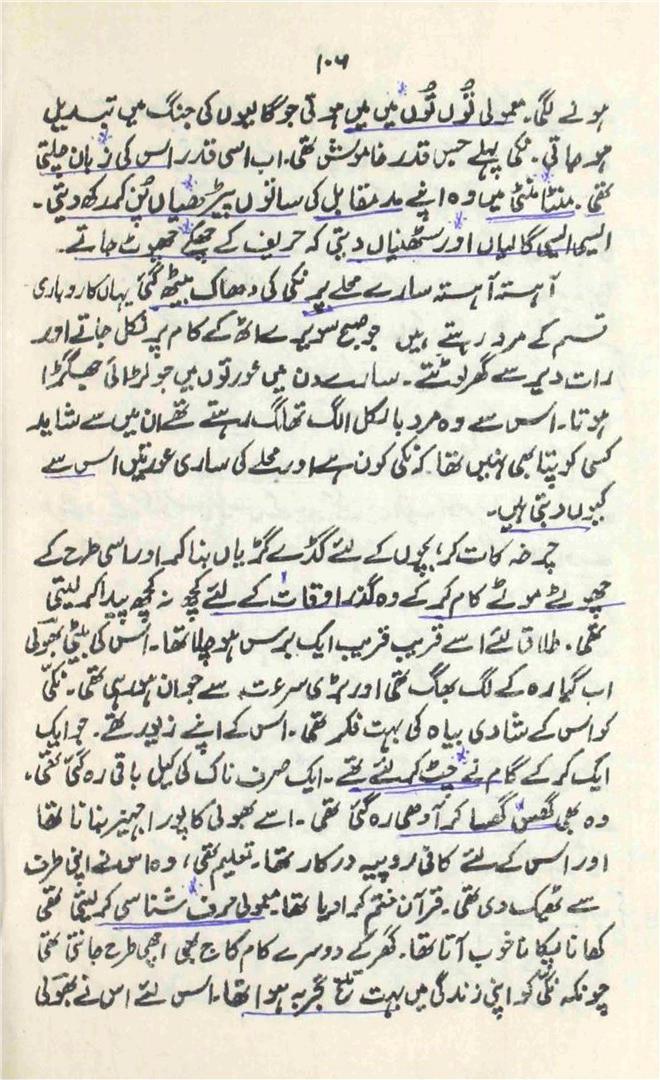 ۱۰۶
ہونے لگی۔ معمولی تُوں تُوں میں میں ہوتی جو گالیوں کی جنگ میں تبدیل
ہو جاتی۔ نکی پہلے جس قدر خاموش تھی۔ اب اسی قدر اس کی زبان چلتی
تھی۔ منٹا منٹی میں وہ اپنے مدمقابل کی ساتوں پیڑھیاں پُن کر رکھ دیتی۔
ایسی ایسی گالیاں اور سٹھنیاں دیتی کہ حریف کے چھکے چھوٹ جاتے۔
آہستہ آہستہ سارے محلے پر نکی کی دھاک بیٹھ گئی یہاں کاروباری
قسم کے مرد رہتے ہیں جو صبح سویرے اٹھ کے کام پر نکل جاتے اور
رات دیر سے گھر لوٹتے۔ سارے دن میں عورتوں میں جو لڑائی جھگڑا
ہوتا۔ اس سے وہ مرد بالکل الگ تھلگ رہتے تھے ان میں سے شاید
کسی کو پتا بھی نہیں تھا کہ نکی کون ہے اور محلے کی ساری عورتیں اس سے
کیوں دبتی ہیں۔
چرخہ کات کر، بچوں کے لئے گڈے گڑیاں بنا کر اور اسی طرح کے
چھوٹے موٹے کام کر کے وہ گذر اوقات کے لئے کچھ نہ کچھ پیدا کر لیتی
تھی۔ طلاق لئے اسے قریب قریب ایک برس ہو چلا تھا۔ اس کی بیٹی بھولی
اب گیارہ کے لگ بھگ تھی اور بڑی سرعت سے جوان ہو رہی تھی۔ نکی
کو اس کے شادی بیاہ کی بہت فکر تھی۔ اس کے اپنے زیور تھے۔ جو ایک
ایک کر کے گام نے چٹ کر لئے تھے۔ ایک صرف ناک کی کیل باقی رہ گئی تھی۔
وہ بھی گھس گھسا کر آدھی رہ گئی تھی۔ اسے بھولی کا پورا جہیز بنانا تھا
اور اس کے لئے کافی روپیہ درکار تھا۔ تعلیم تھی، وہ اس نے اپنی طرف
سے ٹھیک دی تھی۔ قرآن ختم کرا دیا تھا۔ معمولی حرف شناسی کر لیتی تھی
کھانا پکانا خوب آتا تھا۔ گھر کے دوسرے کام کاج بھی اچھی طرح جانتی تھی
چونکہ نکی کو اپنی زندگی میں بہت تلخ تجربہ ہوا تھا۔ اس لئے اس نے بھولی